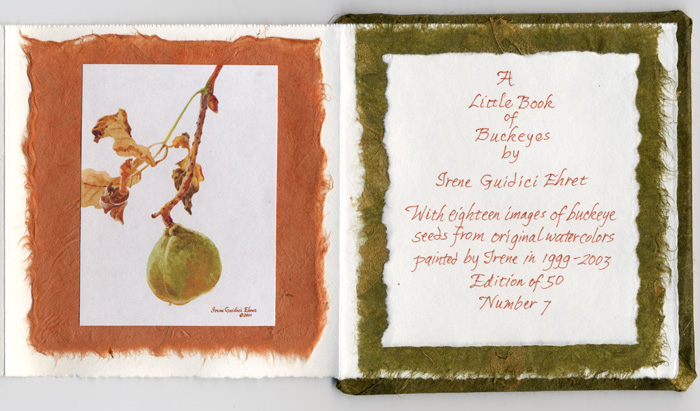 Irene Guidici Ehret
©2001
A
Little Book
of
Buckeyes
by
Irene Guidici Ehret
With eighteen images of buckeye
seeds from original watercolors
painted by Irene in 1999-2003
Edition of 50
Number 7